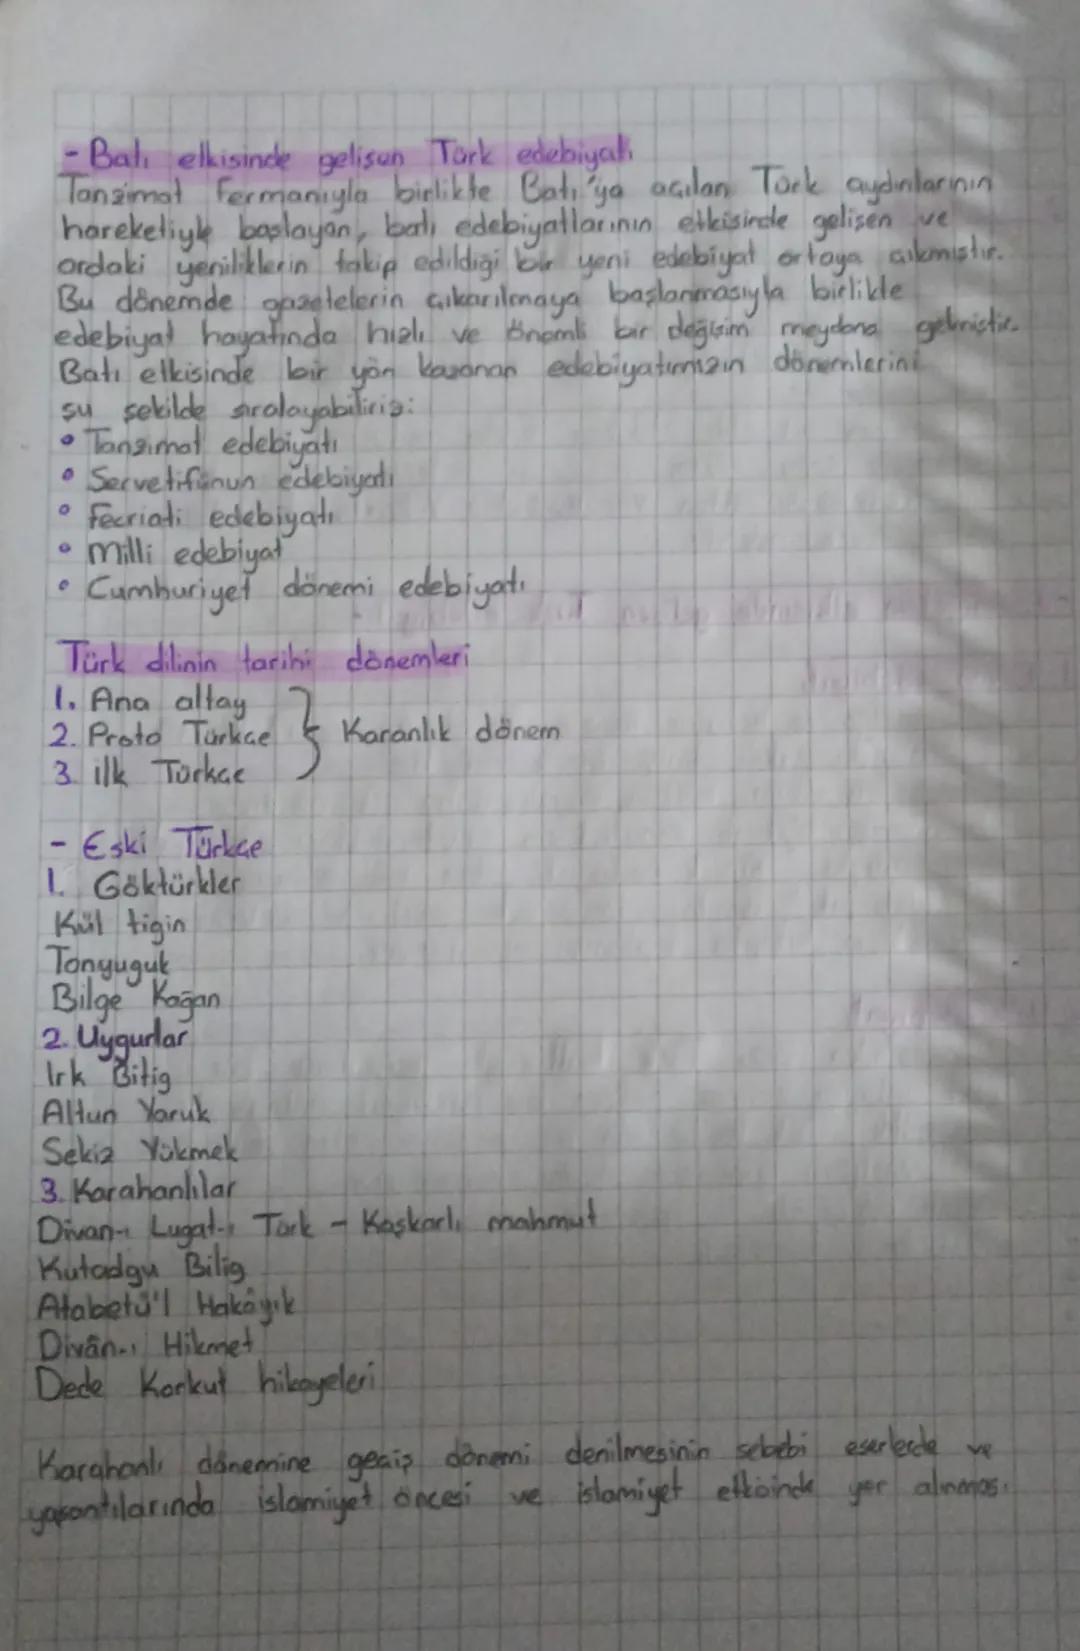 - Batı etkisinde gelişen Türk edebiyatı
Tanzimat fermanıyla birlikte Batı'ya açılan Türk aydınlarının
hareketiyle başlayan, batı edebiyatlarının etkisinde gelişen ve
ordaki yeniliklerin takip edildiği bir yeni edebiyat ortaya çıkmıştır.
Bu dönemde gazetelerin çıkarılmaya başlanmasıyla birlikte
edebiyat hayatında hızlı ve önemli bir değişim meydana gelmiştir.
Batı etkisinde bir yön kazanan edebiyatımızın dönemlerini
şu şekilde sıralayabiliriz:
• Tanzimat edebiyatı
• Servetifünun edebiyatı
• Fecriati edebiyatı
• Milli edebiyat
• Cumhuriyet dönemi edebiyatı
Türk dilinin tarihi dönemleri
1. Ana altay
2. Proto Türkçe } Karanlık dönem
3. ilk Türkçe
- Eski Türkçe
1. Göktürkler
Kül tigin
Tonyuguk
Bilge Kağan
2. Uygurlar
Irk Bitig
Altun Yaruk
Sekiz Yükmek
3. Karahanlılar
Divan-ı Lugat-ı Türk - Kaşkarlı mahmut
Kutadgu Bilig
Atabetü'l Hakâyık
Divân-ı Hikmet
Dede Korkut hikayeleri
Karahanlı dönemine geçiş dönemi denilmesinin sebebi eserlerde ve
yaşantılarında islamiyet öncesi ve islamiyet etkisinde yer alınması